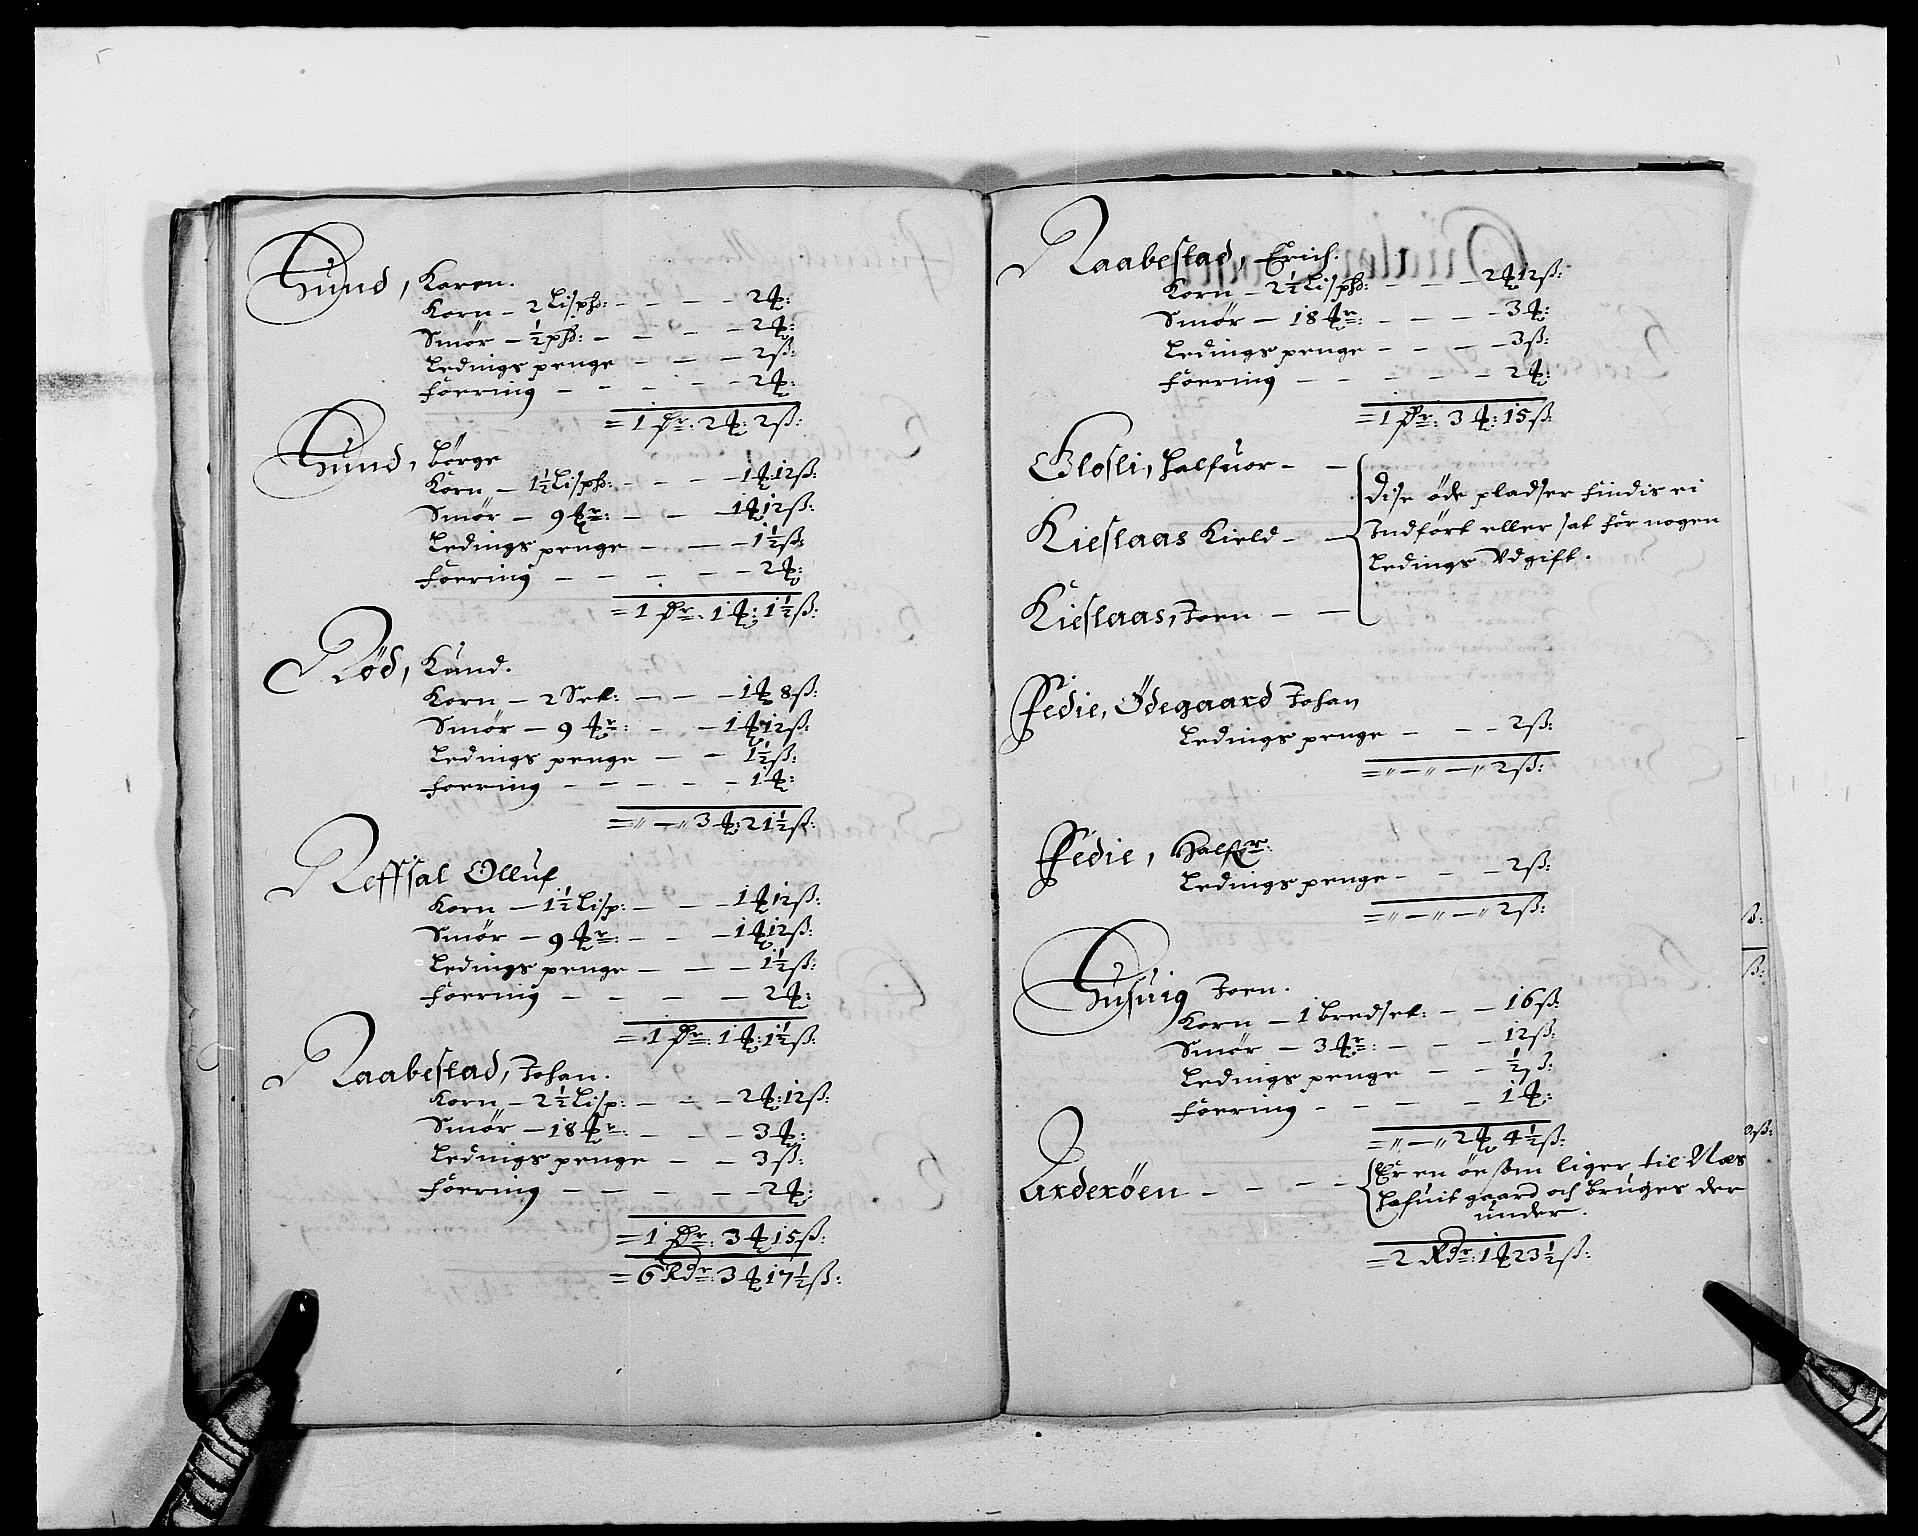 Sund, Karen.
Korn – 2 Lispd: – – – – 2 ℔:
Smör – ½ pd: – – – – 2 ℔:
Ledings penge – – – – 2 ß:
foering – – – – – 2 ℔:
= 1 Dr: 2 ℔: 2 ß:
Sund, Börge
Korn – 1½ Lispd: – – – – 1 ℔: 12 ß:
Smör – 9 ℔r: – – – 1 ℔ 12 ß:
Ledings penge – – – – 1½ ß:
foering – – – – – 2 ℔:
= 1 Dr: 1 ℔: 1½ ß:
Röd, Kund.
Korn – 2 Set: – – – 1 ℔ 8 ß:
Smör – 9 ℔r: – – – 1 ℔ 12 ß:
Ledings penge – – 1½ ß:
foering – – – – – 1 ℔:
= " – " 3 ℔: 21½ ß:
Reffsal Olluf
Korn – 1½ Lisp: – – – 1 ℔ 12 ß:
Smör – 9 ℔r: – – – 1 ℔ 12 ß:
Ledings penge – – – 1½ ß:
foering – – – – 2 ℔:
= 1 Dr: 1 ℔: 1½ ß:
Raabestad, Johan.
Korn – 2½ Lisp: – – – 2 ℔: 12 ß:
Smör – 18 ℔r: – – – 3 ℔:
Ledings penge – – 3 ß:
foering – – – – – 2 ℔:
= 1 Dr: 3 ℔ 15 ß:
= 6 Rdr: 3 ℔ 17½ ß:
Raabestad, Erich.
Korn – 2½ Lispd: – – – 2 ℔ 12 ß:
Smör – 18 ℔r: – – – – 3 ℔:
Ledings penge – – – – 3 ß:
foering – – – – – 2 ℔:
= 1 Dr: 3 ℔: 15 ß:
Glosli, Halfuor – –
Dise öde pladser findis ei
Kieslaas Kield – –
Indfört eller sat for nogen
Ledings Vdgift.
Kieslaas, Joen – –
Fedie, Ödegaard Johan
Ledings penge – – – 2 ß:
= " – " – " 2 ß:
Fedie, Halfr:
Ledings penge – – – 2 ß:
= " – " – " 2 ß:
Husuig Joen.
Korn – 1 bredset: – – 16 ß
Smör – 3 ℔r: – – – 12 ß:
Ledings penge – – ½ ß:
foering – – – – 1 ℔:
= " – " 2 ℔ 4½ ß:
Er en öe som liger til Næs
Arderöen – – – –
Hafuit gaard och bruges der
under.
= 2 Rdr: 1 ℔ 23½ ß:
ß:
ß:
ß: